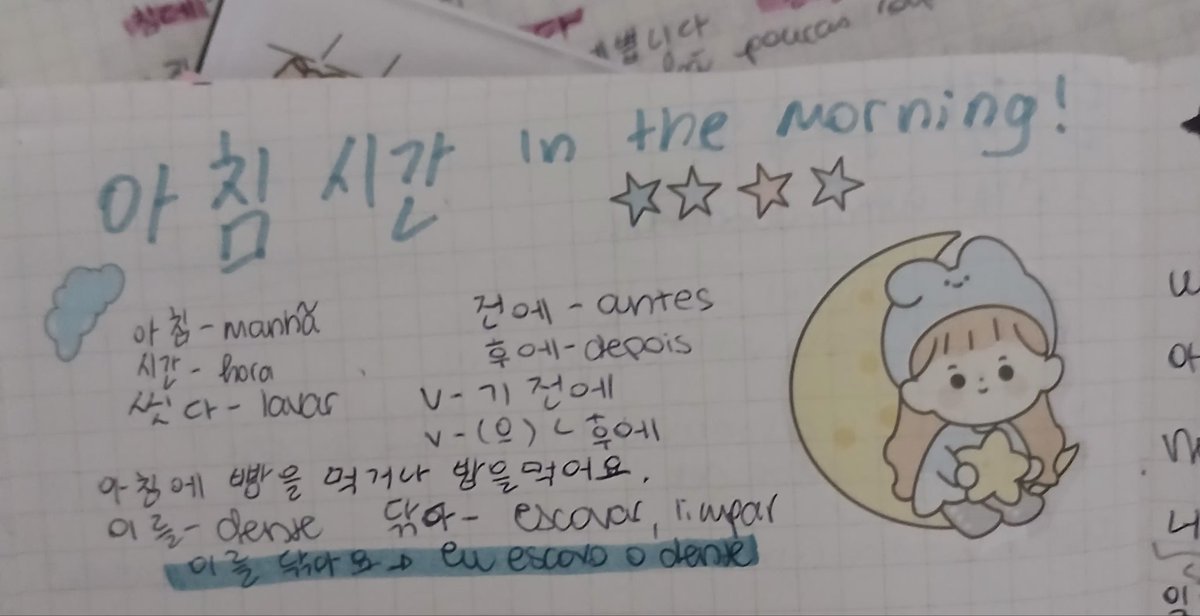 벱니다
poucas
아침 시간 in the morning!
아침 - manhã
시간 - hora
씻다 - lavar
전에 - antes
후에 - depois
V - 기 전에
V - (으)ㄴ 후에
아침에 빵을 먹거나 밥을 먹어요.
이를 - dense 닦아 - escovar, limpar
이를 닦아요 → eu escovo o dense